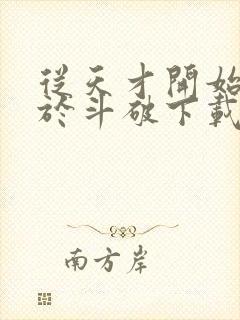 從天才開始
於斗破下載
南方岸